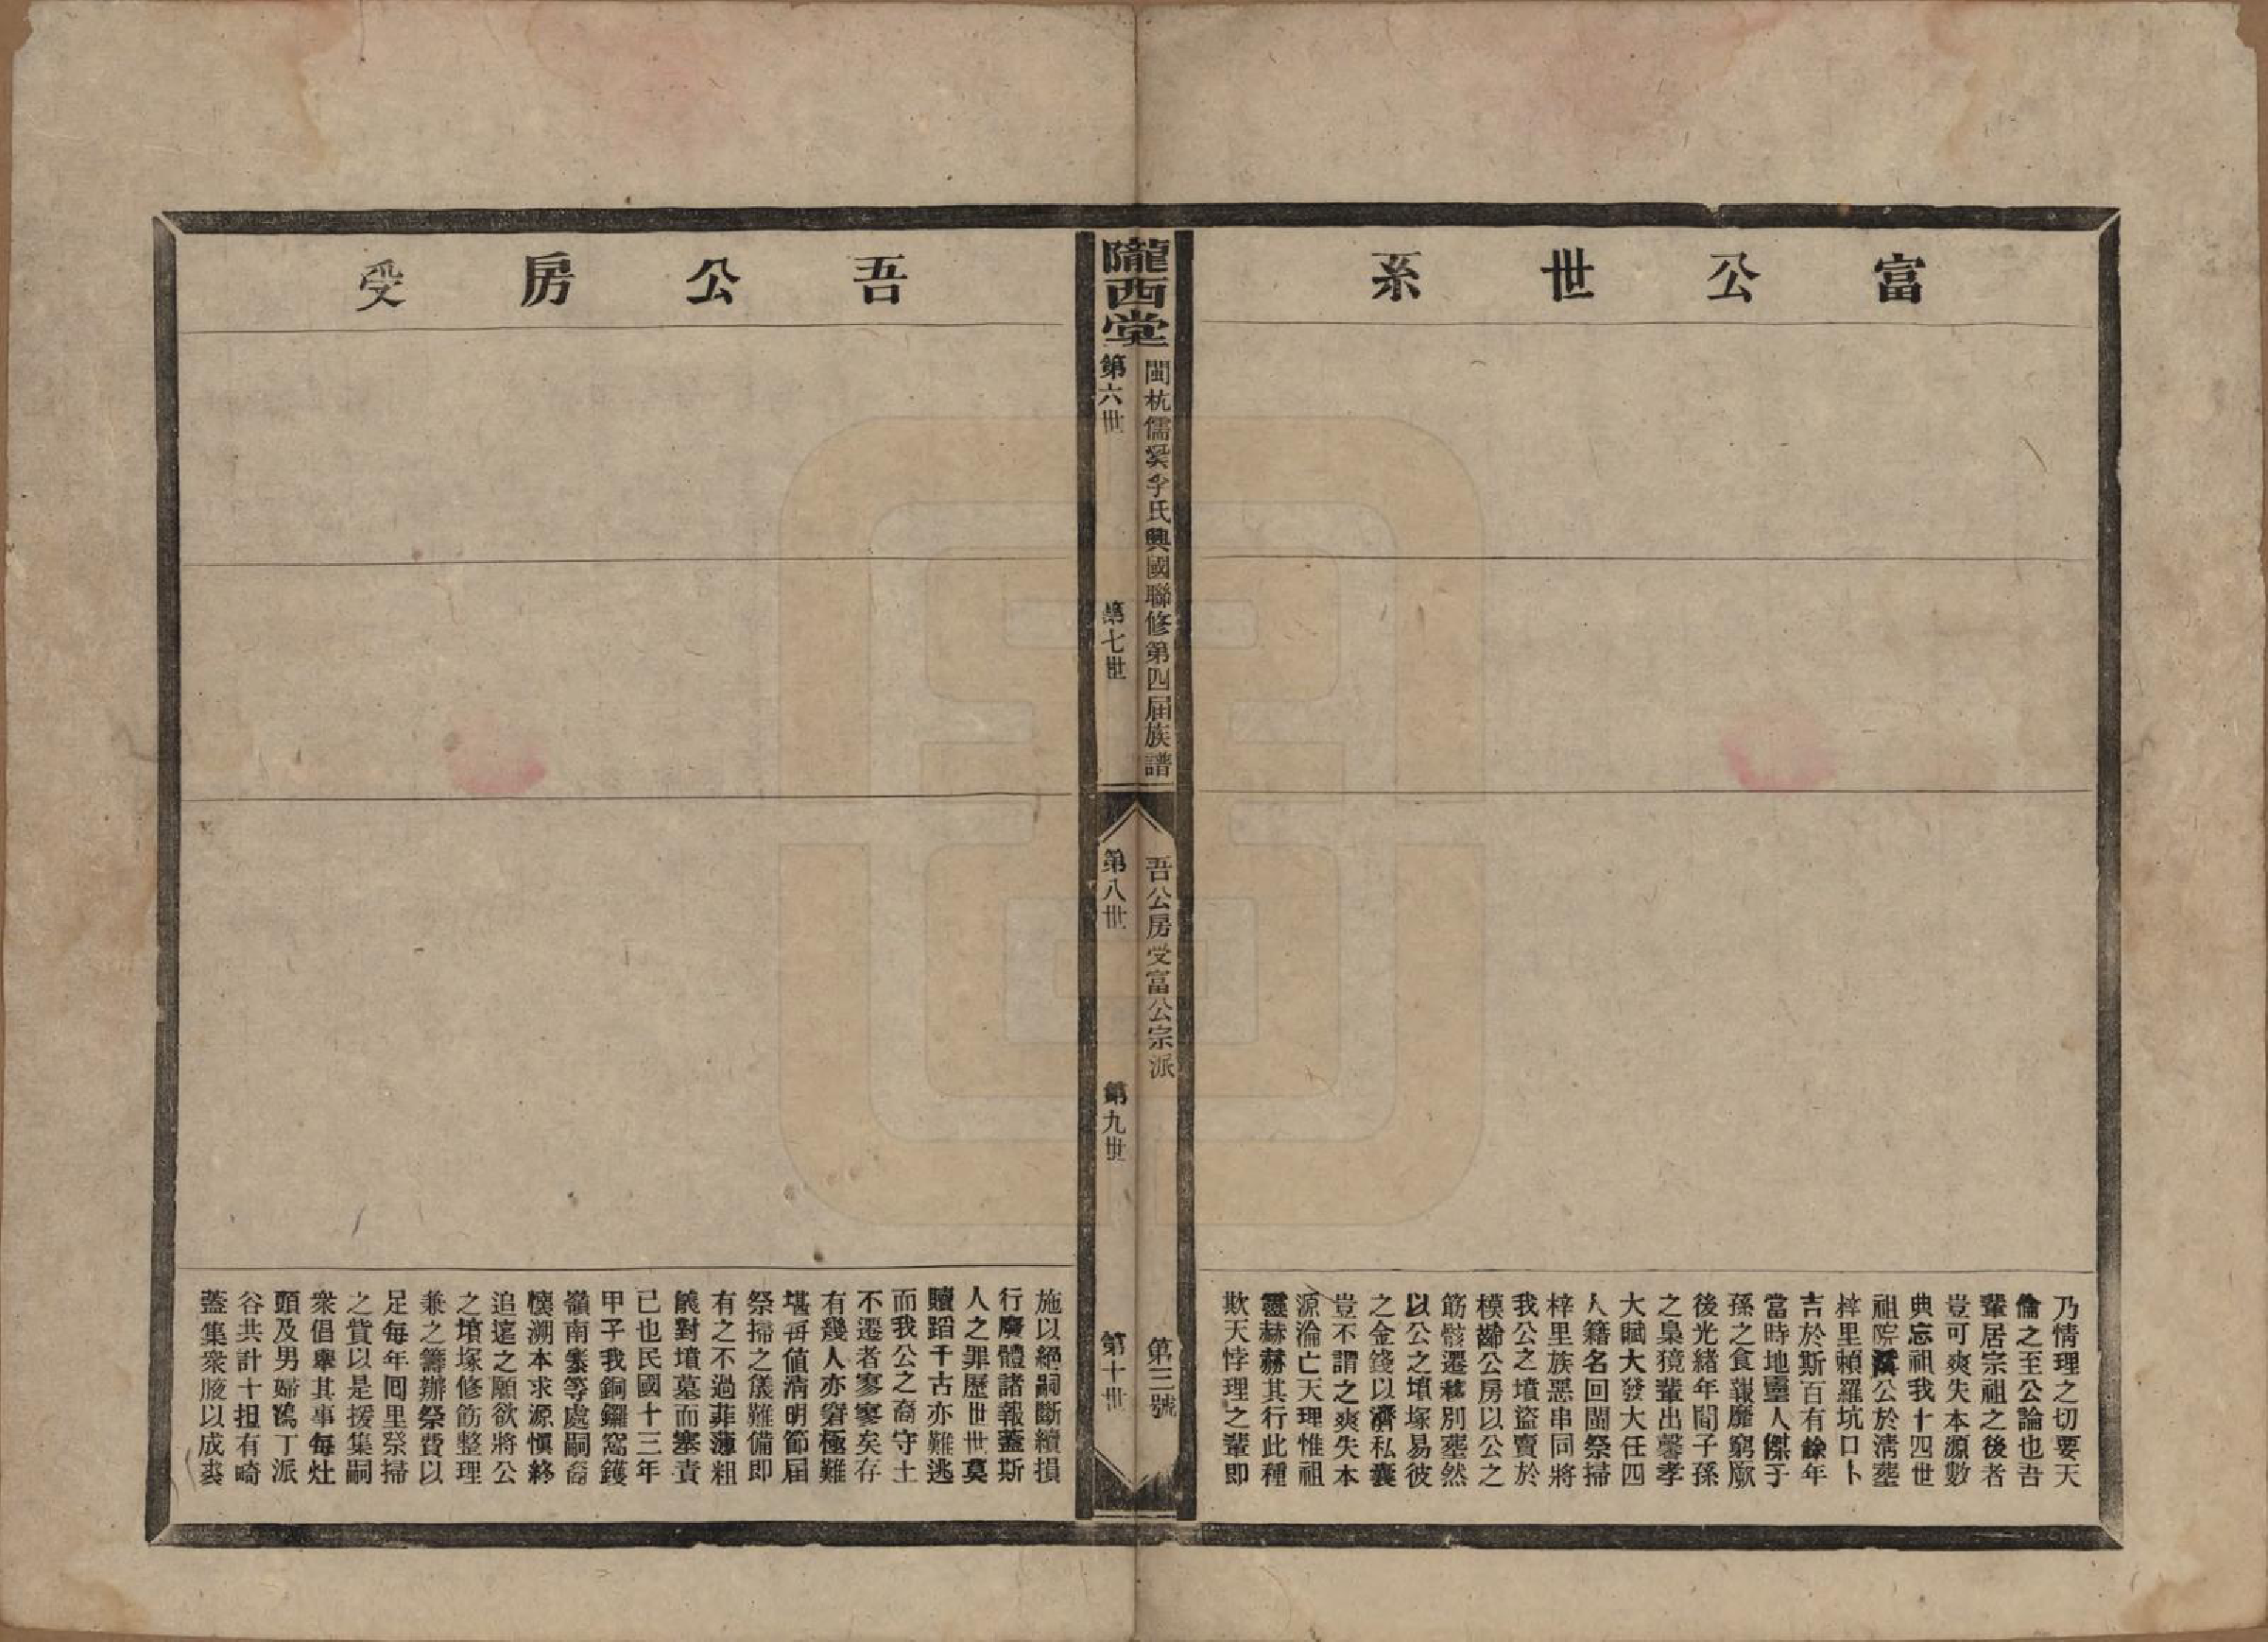 富公世系
乃情理之切要天
倫之至公論也吾
輩居宗祖之後者
豈可爽失本源數
典忘祖我十四世
祖院溪公於淸塟
梓里賴羅坑口卜
吉於斯百有餘年
當時地靈人傑子
孫之食報靡窮厥
後光緒年間子孫
之梟獍輩出罄孝
大賦大發大任四
人籍名回閩祭掃
梓里族惡串同將
我公之墳盜賣於
模齡公房以公之
筋骸遷移別塟然
以公之墳塚易彼
之金錢以濟私囊
豈不謂之爽失本
源淪亡天理惟祖
靈赫赫其行此種
欺天悖理之輩即
閩杭儒溪李氏興國聯修第四屆族譜
吾公房受富公宗派
第三號
隴西堂
第六世
第七世
第八世
第九世
第十世
吾公房受
施以絕嗣斷續損
行廢體諸報蓋斯
人之罪歷世世莫
贖蹈千古亦難逃
而我公之裔守土
不遷者寥寥矣存
有幾人亦窘極難
堪再値淸明節屆
祭掃之儀難備即
有之不過菲薄粗
儀對墳墓而塞責
已也民國十三年
甲子我銅鑼窩鑊
嶺南寨等處嗣裔
懷溯本求源愼終
追遠之願欲將公
之墳塚修筋整理
兼之籌辦祭費以
足每年囘里祭掃
之貲以是援集嗣
衆倡舉其事每灶
頭及男婦鴉丁派
谷共計十担有畸
蓋集衆腋以成裘